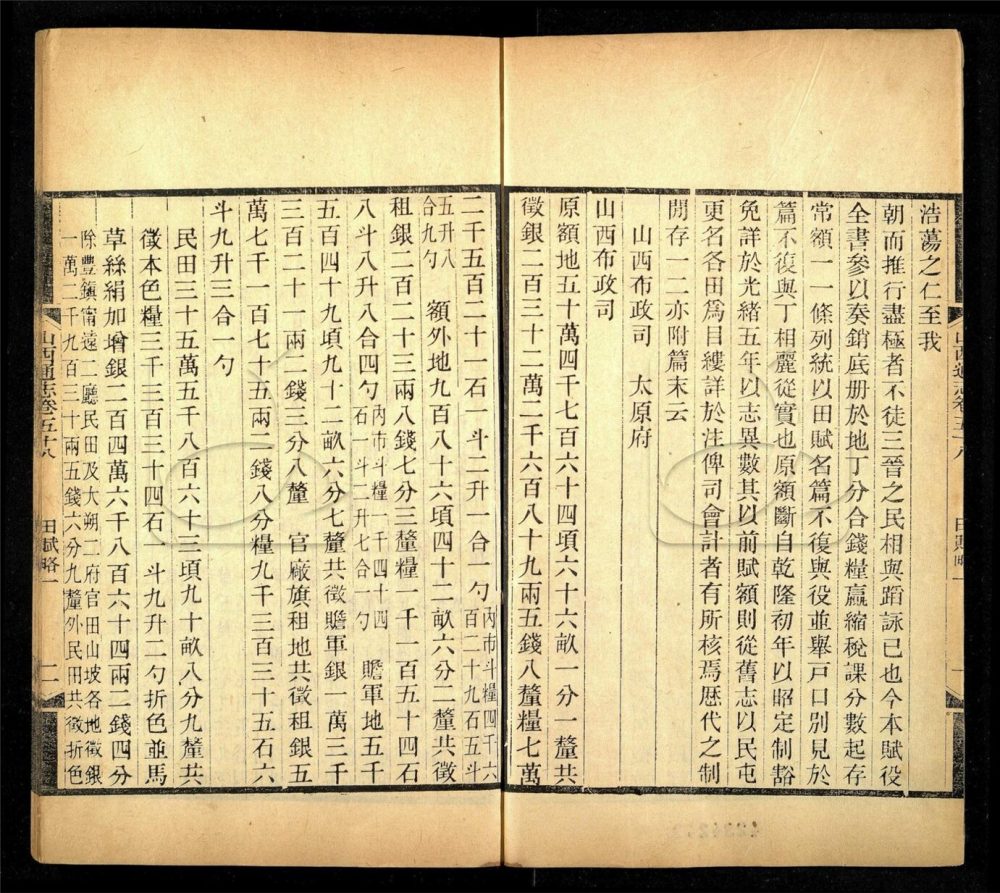 浩蕩之仁至我
朝而推行盡極者不徒三晉之民相與蹈詠已也今本賦役
全書參以奏銷底册於地丁分合錢糧贏縮稅課分數起存
常額一一條列統以田賦名篇不復與役並舉戸口別見於
篇不復與丁相麗從實也原額斷自乾隆初年以昭定制豁
免詳於光緒五年以志異數其以前賦額則從舊志以民屯
更名各田爲目縷詳於注俾司會計者有所核焉歷代之制
閒存一二亦附篇末云
山西布政司　太原府
山西布政司
原額地五十萬四千七百六十四頃六十六畝一分一釐共
徵銀二百三十二萬二千六百八十九兩五錢八釐糧七萬
二千五百二十一石一斗二升一合一勺内市斗糧四千六
百二十九石五斗
五升八
合九勺　額外地九百八十六頃四十二畝六分二釐共徵
租銀二百二十三兩八錢七分三釐糧一千一百五十四石
八斗八升八合四勺内市斗糧一千四十四
石一斗二升七合一勺　贍軍地五千
五百四十九頃九十二畝六分七釐共徵贍軍銀一萬三千
三百二十一兩二錢三分八釐　官廠旗租地共徵租銀五
萬七千一百七十五兩二錢八分糧九千三百三十五石六
斗九升三合一勺
民田三十五萬五千八百六十三頃九十畝八分九釐共
徵本色糧三千三百三十四石一斗九升二勺折色並馬
草絲絹加增銀二百四萬六千八百六十四兩二錢四分
除豐鎮甯遠二廳民田及大朔二府官田山坡各地徵銀
一萬二千九百三十兩五錢六分九釐外民田共徵折色
山西通志卷五十八　田賦略一　二